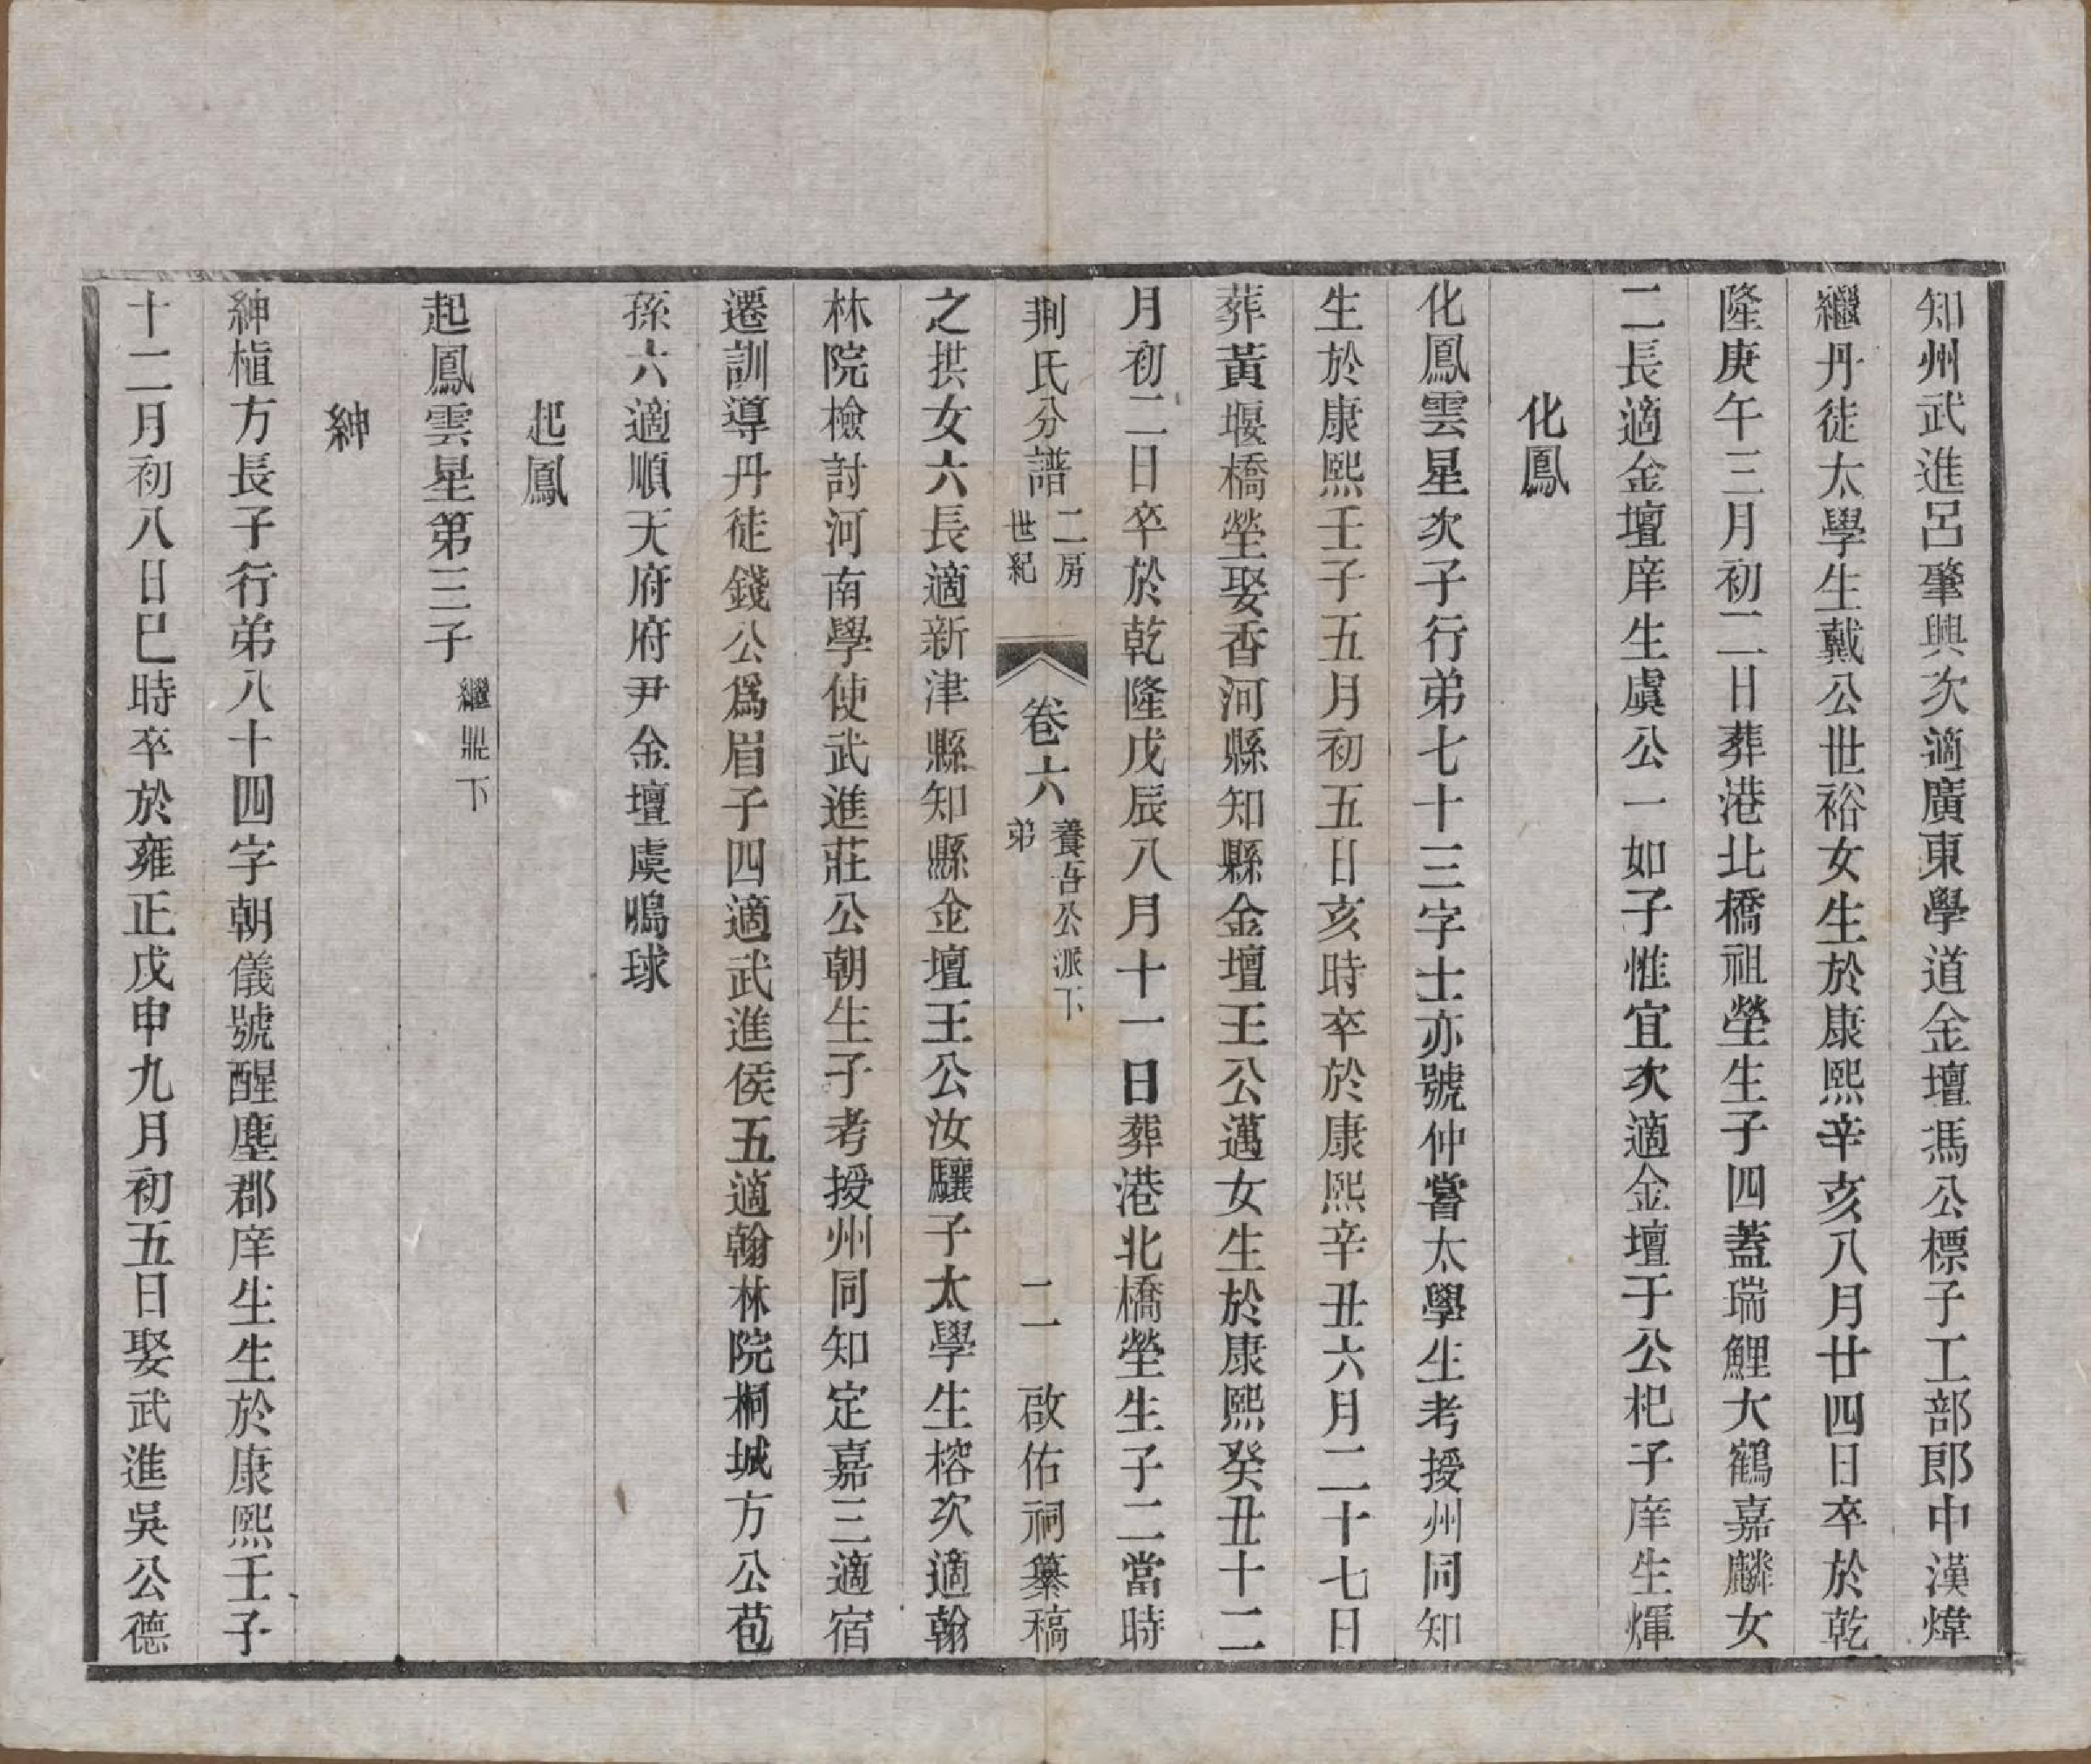 知州武進呂肇興次適廣東學道金壇馮公標子工部郎中漢煒
繼丹徒太學生戴公世裕女生於康熙辛亥八月廿四日卒於乾
隆庚午三月初二日葬港北橋祖塋生子四蓋瑞鯉大鶴嘉麟女
二長適金壇庠生虞公一如子惟宜次適金壇于公杞子庠生煇
化鳳
化鳳雲星次子行弟七十三字士亦號仲嘗太學生考授州同知
生於康熙壬子五月初五日亥時卒於康熙辛丑六月二十七日
葬黃堰橋塋娶香河縣知縣金壇王公邁女生於康熙癸丑十二
月初二日卒於乾隆戊辰八月十一日葬港北橋塋生子二當時
荆氏分譜 二房世紀 卷六 養吾公派下弟 二一 啟佑祠纂稿
之拱女六長適新津縣知縣金壇王公汝驤子太學生榕次適翰
林院檢討河南學使武進莊公朝生子考授州同知定嘉三適宿
遷訓導丹徒錢公爲眉子四適武進侯五適翰林院桐城方公苞
孫六適順天府府尹金壇虞鳴球
起鳳
起鳳雲星第三子 繼羆下
紳
紳植方長子行弟八十四字朝儀號醒塵郡庠生生於康熙壬子
十二月初八日巳時卒於雍正戊申九月初五日娶武進吳公德